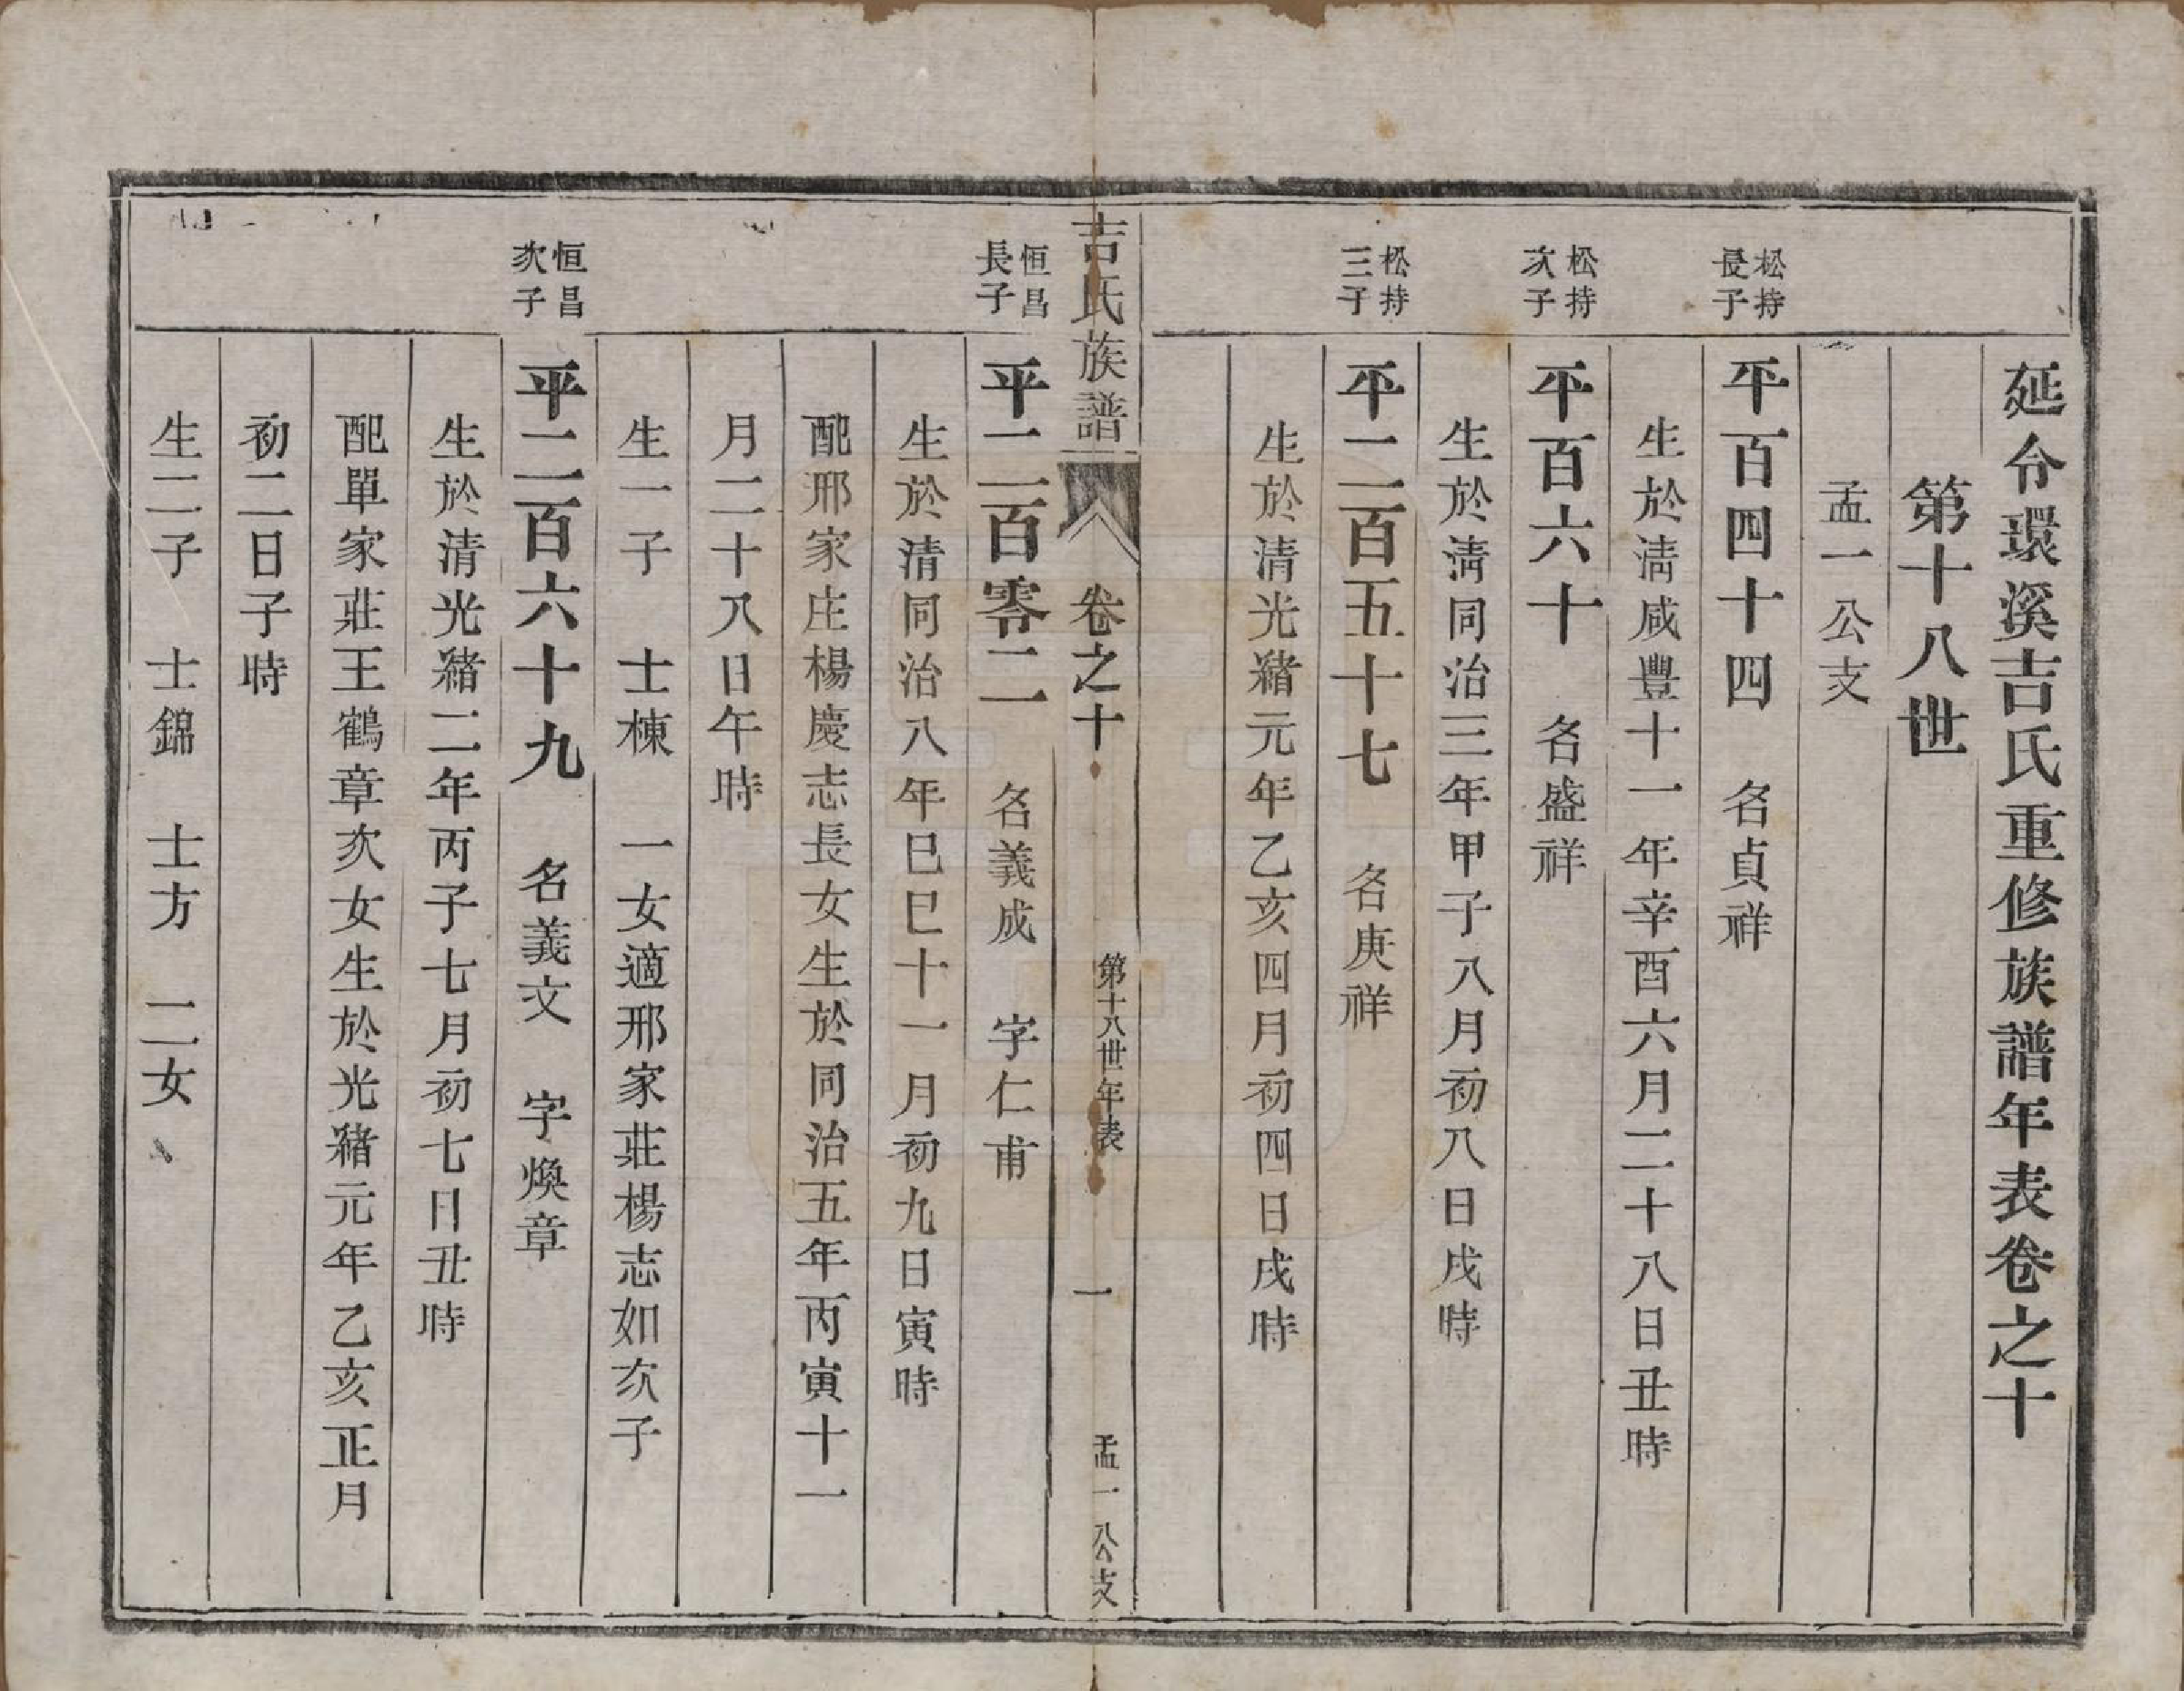 延令環溪吉氏重修族譜年表卷之十
第十八世
孟一公支
松持長子
平百四十四　名貞祥
生於清咸豐十一年辛酉六月二十八日丑時
松持次子
平百六十　名盛祥
生於清同治三年甲子八月初八日戌時
松持三子
平二百五十七　名庚祥
生於清光緒元年乙亥四月初四日戌時
吉氏族譜　卷之十　第十八世年表　一　孟一公支
恒昌長子
平二百零二　名義成　字仁甫
生於清同治八年巳巳十一月初九日寅時
配邢家庄楊慶志長女生於同治五年丙寅十一
月二十八日午時
生一子　士棟　一女適邢家莊楊志如次子
恒昌次子
平二百六十九　名義文　字煥章
生於清光緒二年丙子七月初七日丑時
配單家莊王鶴章次女生於光緒元年乙亥正月
初二日子時
生二子　士錦　士方　二女